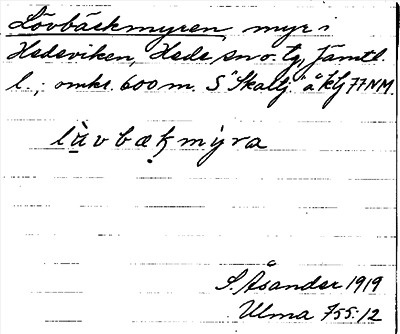 Lövbäckmyren myr i
Hedeviken, Hede sn o. tg, Jämtl.
l.; omkr. 600 m. S "Skaltj." å ktj 77 NM.
lùvbækmyra
S. Åsander 1919
Ulma 755:12